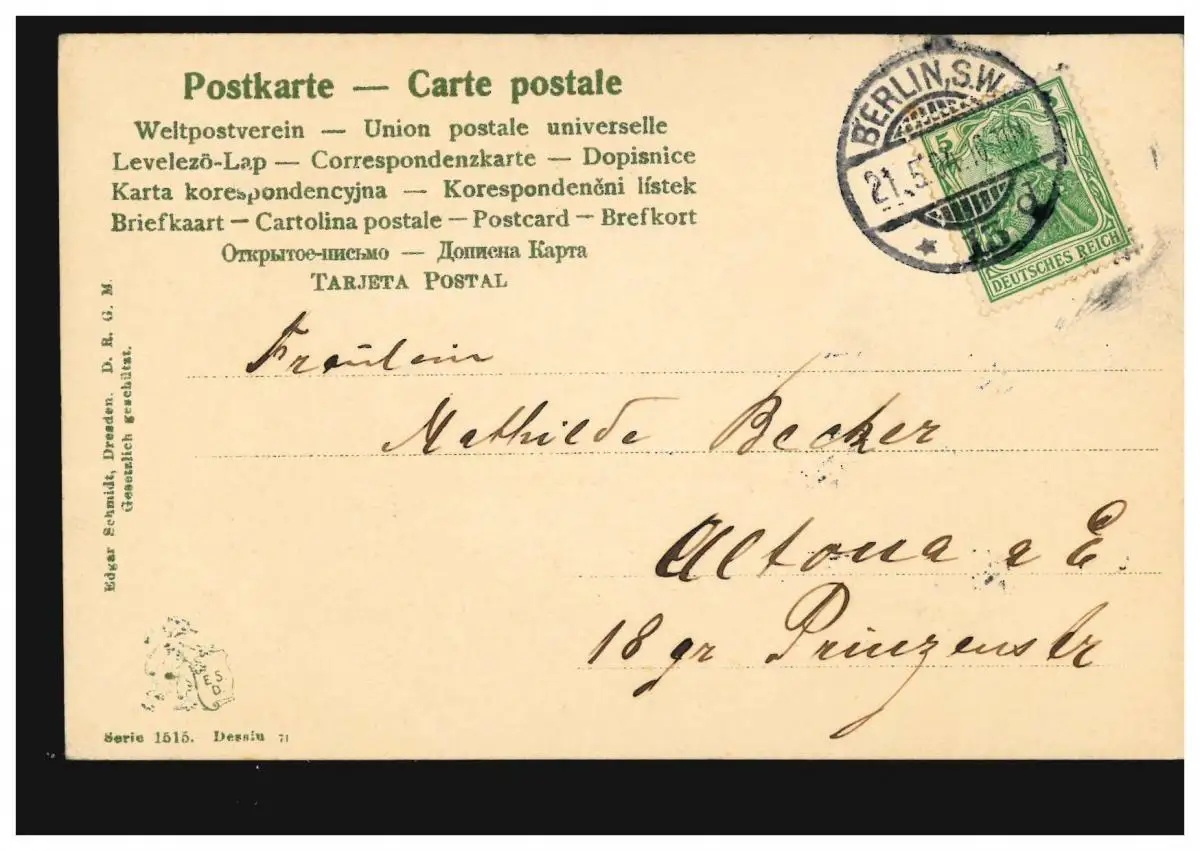 Postkarte — Carte postale
Weltpostverein — Union postale universelle
Levelező-Lap — Correspondenzkarte — Dopisnice
Karta korespondencyjna — Korespondenčni lístek
Briefkaart — Cartolina postale — Postcard — Brefkort
Открытое-письмо — Дописна Карта
TARJETA POSTAL
BERLIN, S.W.
21.5.04
5
DEUTSCHES REICH
Fräulein
Mathilde Becker
Altona a E.
18 gr Prinzenstr
Edgar Schmidt, Dresden. D. R. G. M.
Gesetzlich geschützt.
E S D
Serie 1515. Dessin 71